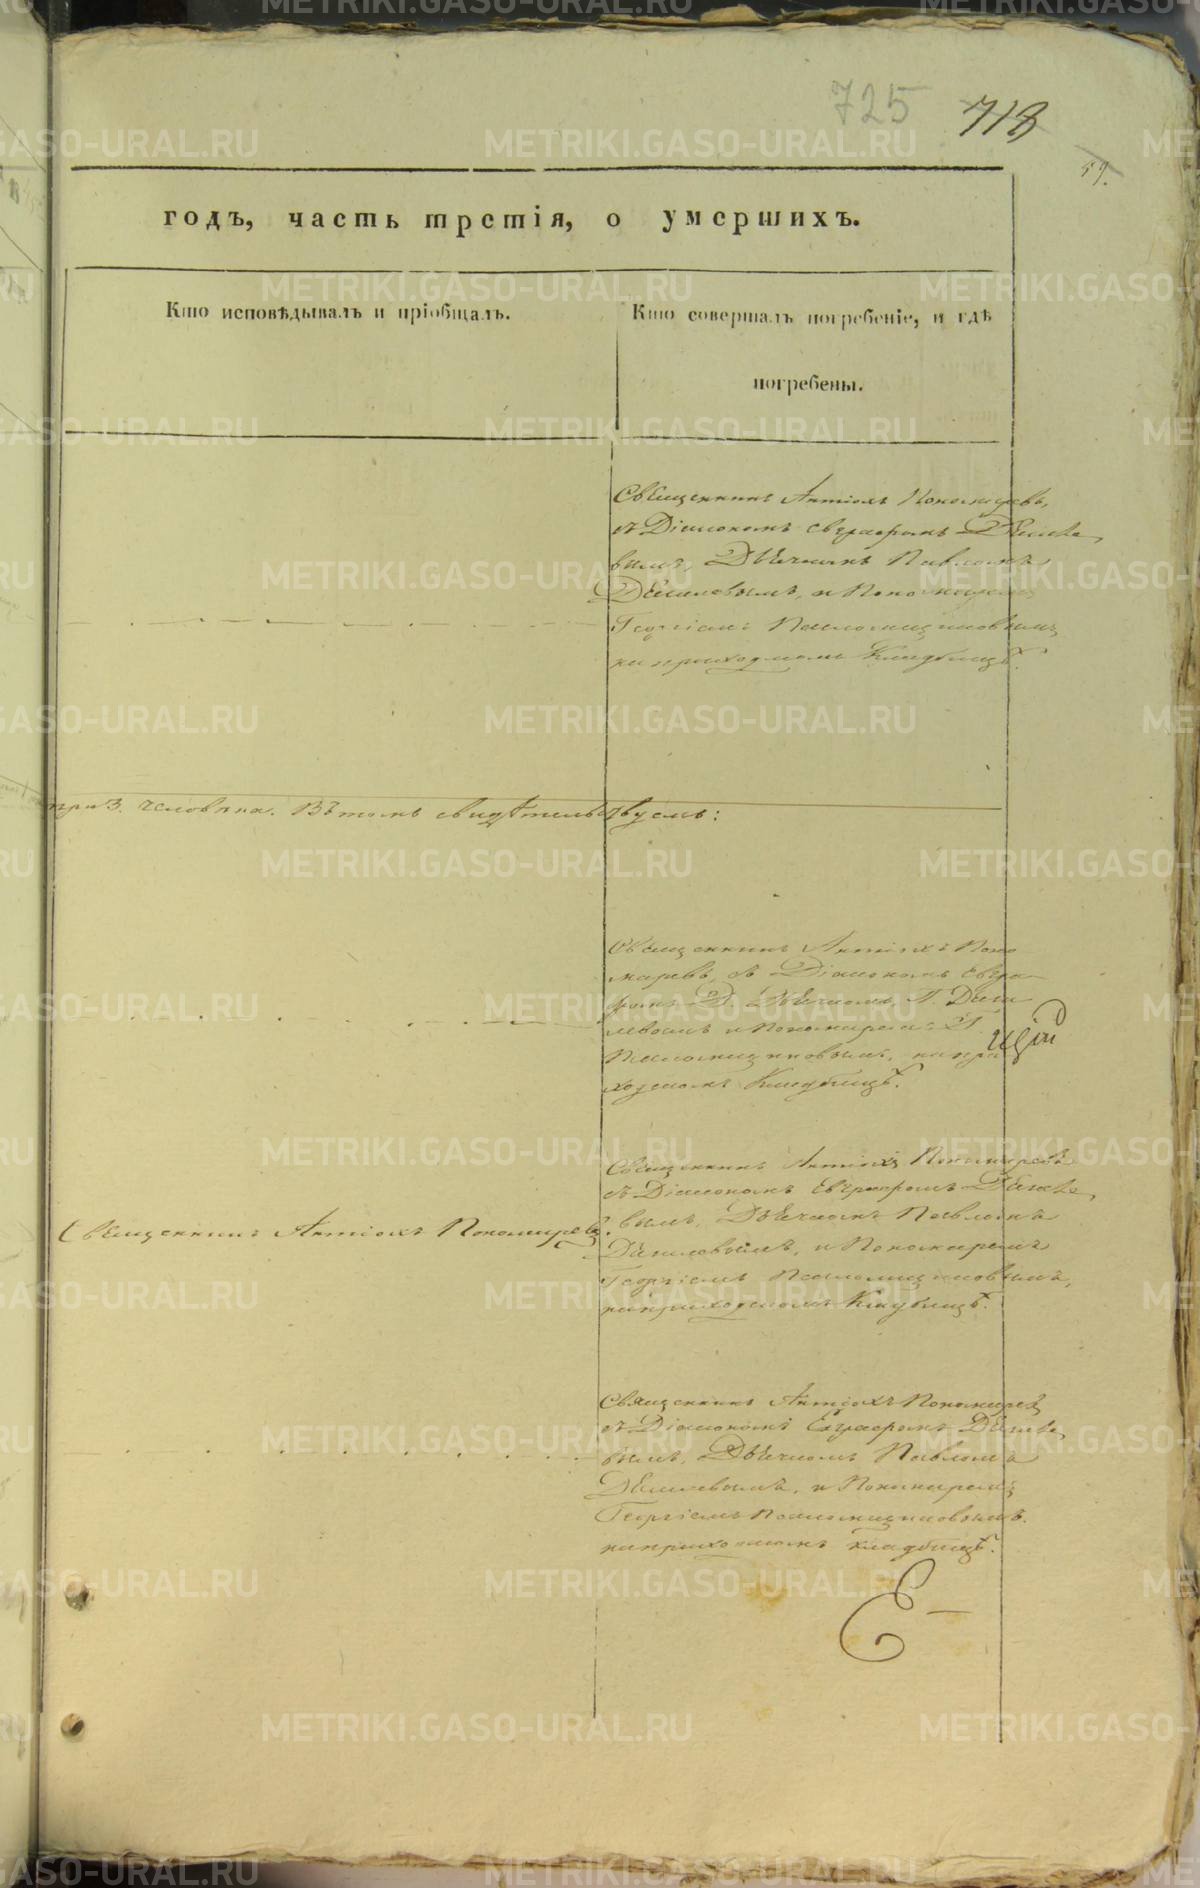 725 718
59.
годъ, часть третія, о умершихъ.
Кто исповѣдывалъ и пріобщалъ.
Кто совершалъ погребеніе, и гдѣ
погребены.
Священникъ Антіохъ Пономаревъ,
съ Діакономъ Евграфомъ
вымъ, Дьячкомъ Павломъ
и Пономаремъ
Георгіемъ Паломицыновымъ
на приходскомъ кладбищѣ.
человѣка. Въ томъ свидѣтельствуемъ:
Священникъ Антіохъ Поно
маревъ, съ Діакономъ Евгра
фомъ Д. Дьячкомъ П.
и Пономаремъ Г.
на при
ходскомъ кладбищѣ.
Священникъ Антіохъ Пономаревъ.
Священникъ Антіохъ Пономаревъ
съ Діакономъ Евграфомъ
вымъ, Дьячкомъ Павломъ
и Пономаремъ
Георгіемъ Паломицыновымъ,
на приходскомъ кладбищѣ.
Священникъ Антіохъ Пономаревъ
съ Діакономъ Евграфомъ
вымъ, Дьячкомъ Павломъ
и Пономаремъ
Георгіемъ Паломицыновымъ.
на приходскомъ кладбищѣ.
METRIKI.GASO-URAL.RU